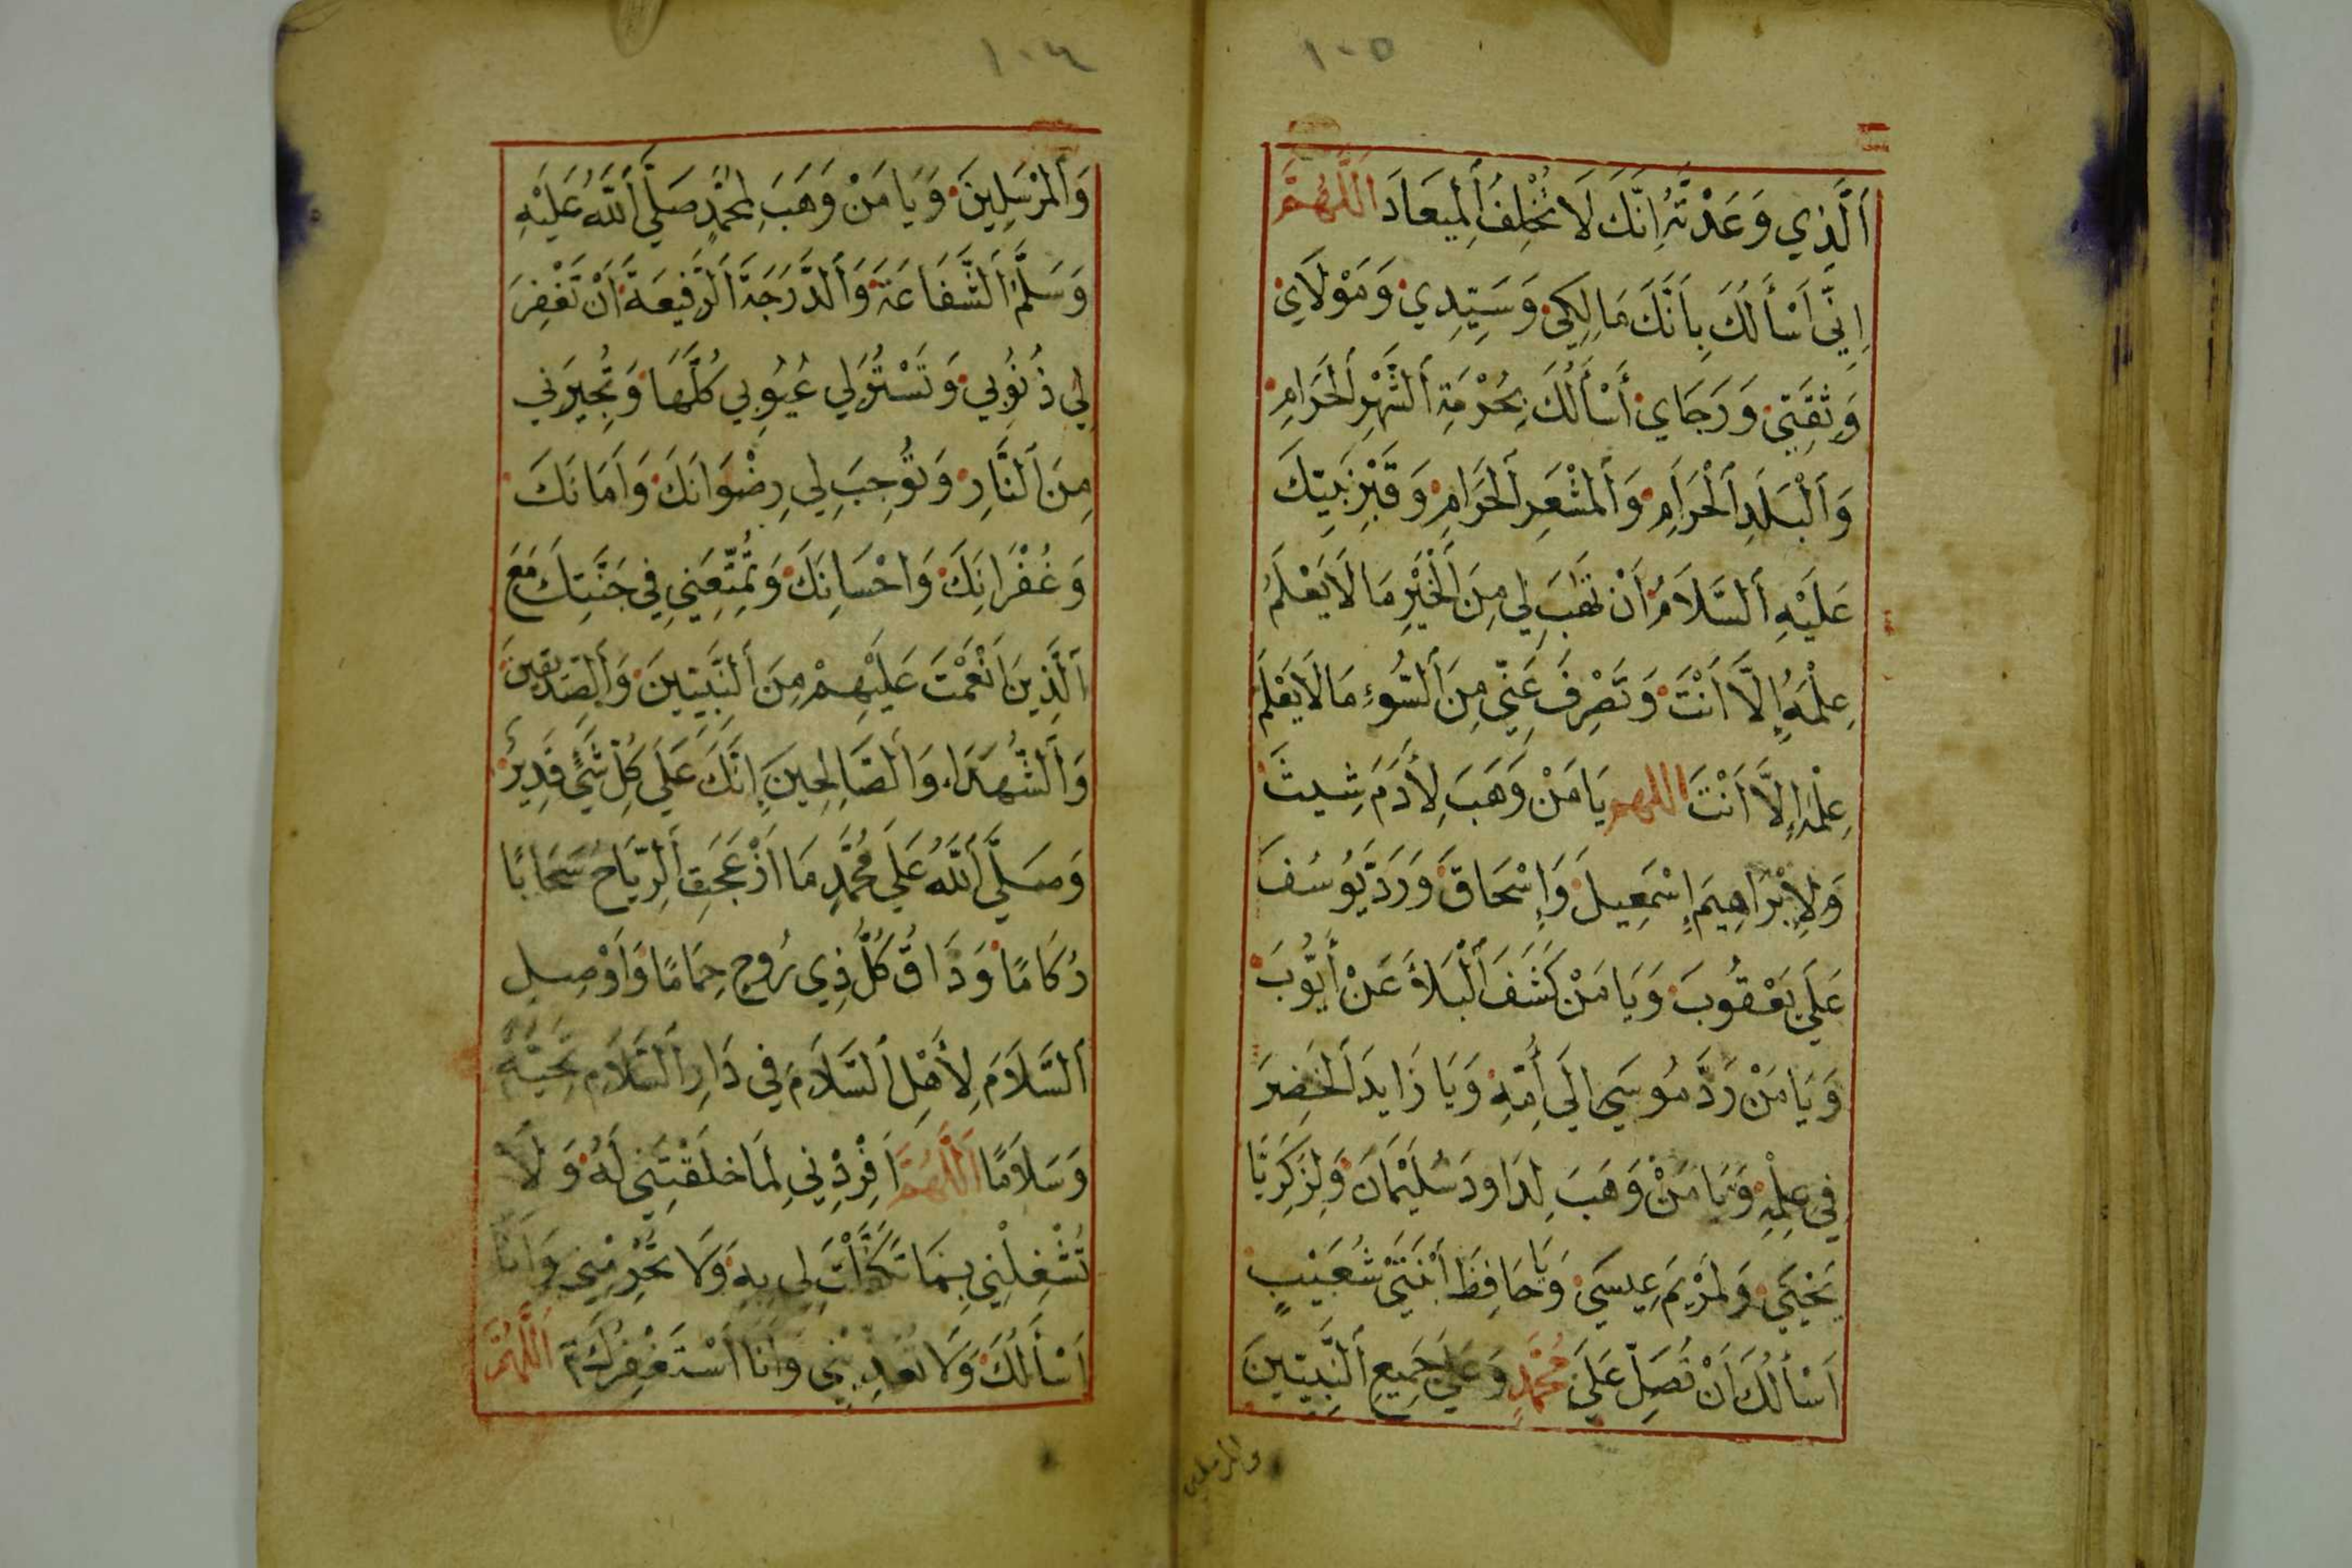 ١٠٥
اَلَّذِي وَعَدْتَهُ اِنَّكَ لَا تُخْلِفُ اَلْمِيعَادَ اَللَّهُمَّ
اِنِّي اَسْأَلُكَ بِاَنَّكَ مَالِكِي وَسَيِّدِي وَمَوْلَايَ
وَثِقَتِي وَرَجَايَ أَسْأَلُكَ بِحُرْمَةِ اَلشَّهْرِ اَلْحَرَامِ
وَاَلْبَلَدِ اَلْحَرَامِ وَاَلْمَشْعَرِ اَلْحَرَامِ وَقَبْرِ نَبِيِّكَ
عَلَيْهِ اَلسَّلَامُ اَنْ تَهَبَ لِي مِنَ اَلْخَيْرِ مَا لَا يَعْلَمُ
عِلْمَهُ اِلَّا اَنْتَ وَتَصْرِفَ عَنِّي مِنَ اَلسُّوءِ مَا لَا يَعْلَمُ
عِلْمَهُ إِلَّا اَنْتَ اللهم يَا مَنْ وَهَبَ لِأَدَمَ شِيثَ
وَلِإِبْرَاهِيمَ إِسْمَعِيلَ وَإِسْحَاقَ وَرَدَّ يُوسُفَ
عَلَى يَعْقُوبَ وَيَا مَنْ كَشَفَ اَلْبَلَاءَ عَنْ أَيُّوبَ
وَيَا مَنْ رَدَّ مُوسَى اِلَى أُمِّهِ وَيَا زَايِدَ اَلْخَضِرَ
فِي عِلْمِهِ وَيَا مَنْ وَهَبَ لِدَاودَ سُلَيْمَانَ وَلِزَكَرِيَّا
يَحْيَى وَلِمَرْيَمَ عِيسَى وَيَا حَافِظَ اَبْنَتَيْ شُعَيْبٍ
اَسْأَلُكَ اَنْ تُصَلِّ عَلَى مُحَمَّدٍ وَعَلَى جَمِيعِ اَلنَّبِيِّينَ
والمرسلين
١٠٦
وَاَلْمُرْسَلِينَ وَيَا مَنْ وَهَبَ لِمُحَمَّدٍ صَلَّى اَللَّهُ عَلَيْهِ
وَسَلَّمَ اَلشَّفَاعَةَ وَاَلدَّرَجَةَ اَلرَّفِيعَةَ اَنْ تَغْفِرَ
لِي ذُنُوبِي وَتَسْتُرَ لِي عُيُوبِي كُلَّهَا وَتُجِيرَنِي
مِنَ اَلنَّارِ وَتُوجِبَ لِي رِضْوَانَكَ وَاَمَانَكَ
وَغُفْرَانِكَ وَاحْسَانِكَ وَتُمَتِّعَنِي فِي جَنَّتِكَ مَعَ
اَلَّذِينَ اَنْعَمْتَ عَلَيْهِمْ مِنَ اَلنَّبِيِّينَ وَاَلصِّدِّيقِينَ
وَاَلشُّهَدَاءِ وَاَلصَّالِحِينَ اِنَّكَ عَلَى كُلِّ شَيْءٍ قَدِيرٌ
وَصَلَّى اَللَّهُ عَلَى مُحَمَّدٍ مَا اَزْعَجَتِ اَلرِّيَاحُ سَحَابًا
رُكَامًا وَذَاقَ كُلُّ ذِي رُوحٍ حِمَامًا وَاَوْصِلِ
اَلسَّلَامَ لِأَهْلِ اَلسَّلَامَ فِي دَارِ اَلسَّلَامِ تَحِيَّةً
وَسَلَامًا اَللَّهُمَّ اَفْرِدْنِي لِمَا خَلَقْتَنِي لَهُ وَلَا
تُشْغِلْنِي بِمَا تَكَفَّلْتَ لِي بِهِ وَلَا تَحْرِمْنِي وَاَنَا
اَسْأَلُكَ وَلَا تُعَذِّبْنِي وَاَنَا اَسْتَغْفِرُكَ اَللَّهُمَّ